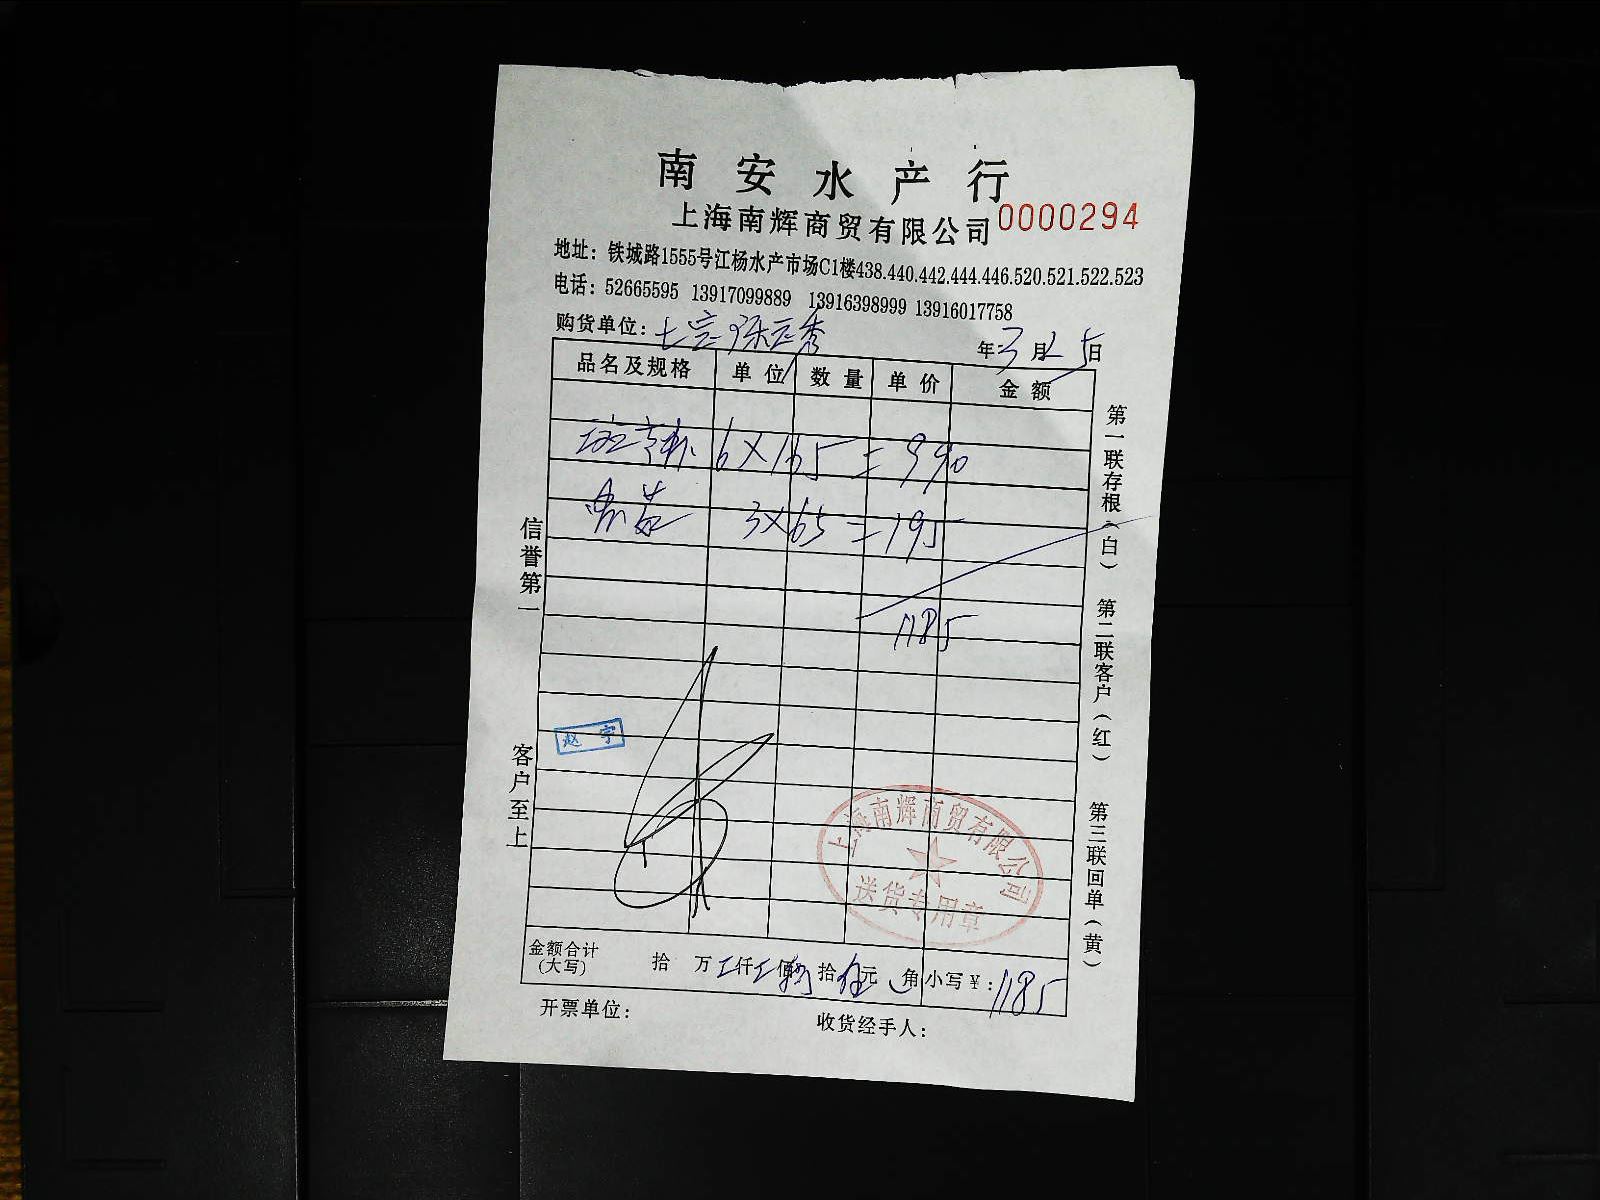 南安水产行
上海南辉商贸有限公司 0000294
地址：铁城路1555号江杨水产市场C1楼438.440.442.444.446.520.521.522.523
电话：52665595 13917099889 13916398999 13916017758
购货单位：
年3月25日
品名及规格 单位 数量 单价 金额
6×165=990
3×65=195
1185
赵宇
上海南辉商贸有限公司
送货专用章
金额合计(大写) 拾 万 仟 佰 拾 伍元 角 小写￥：1185
开票单位： 收货经手人：
信誉第一
客户至上
第一联存根（白）
第二联客户（红）
第三联回单（黄）